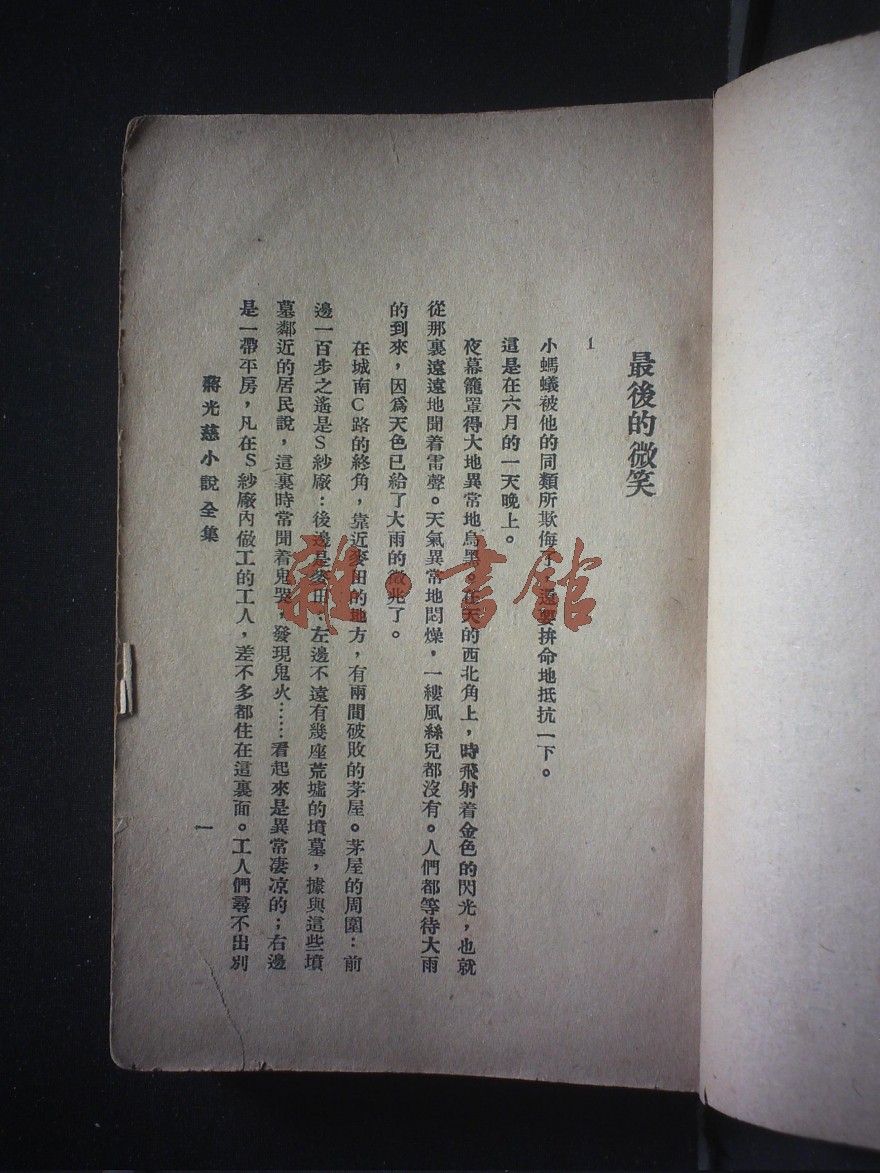 最後的微笑
1
小螞蟻被他的同類所欺侮了，還要拚命地抵抗一下。
這是在六月的一天晚上。
夜幕籠罩得大地異常地烏黑。在天的西北角上，時飛射着金色的閃光，也就
從那裏遠遠地聞着雷聲。天氣異常地悶燥，一縷風絲兒都沒有。人們都等待大雨
的到來，因爲天色已給了大雨的徵兆了。
在城南C路的終角，靠近麥田的地方，有兩間破敗的茅屋。茅屋的周圍：前
邊一百步之遙是S紗廠：後邊是麥田；左邊不遠有幾座荒墟的墳墓，據與這些墳
墓鄰近的居民說，這裏時常聞着鬼哭，發現鬼火……看起來是異常凄凉的；右邊
是一帶平房，凡在S紗廠內做工的工人，差不多都住在這裏面。工人們尋不出別
蔣光慈小說全集
一
雜·書館